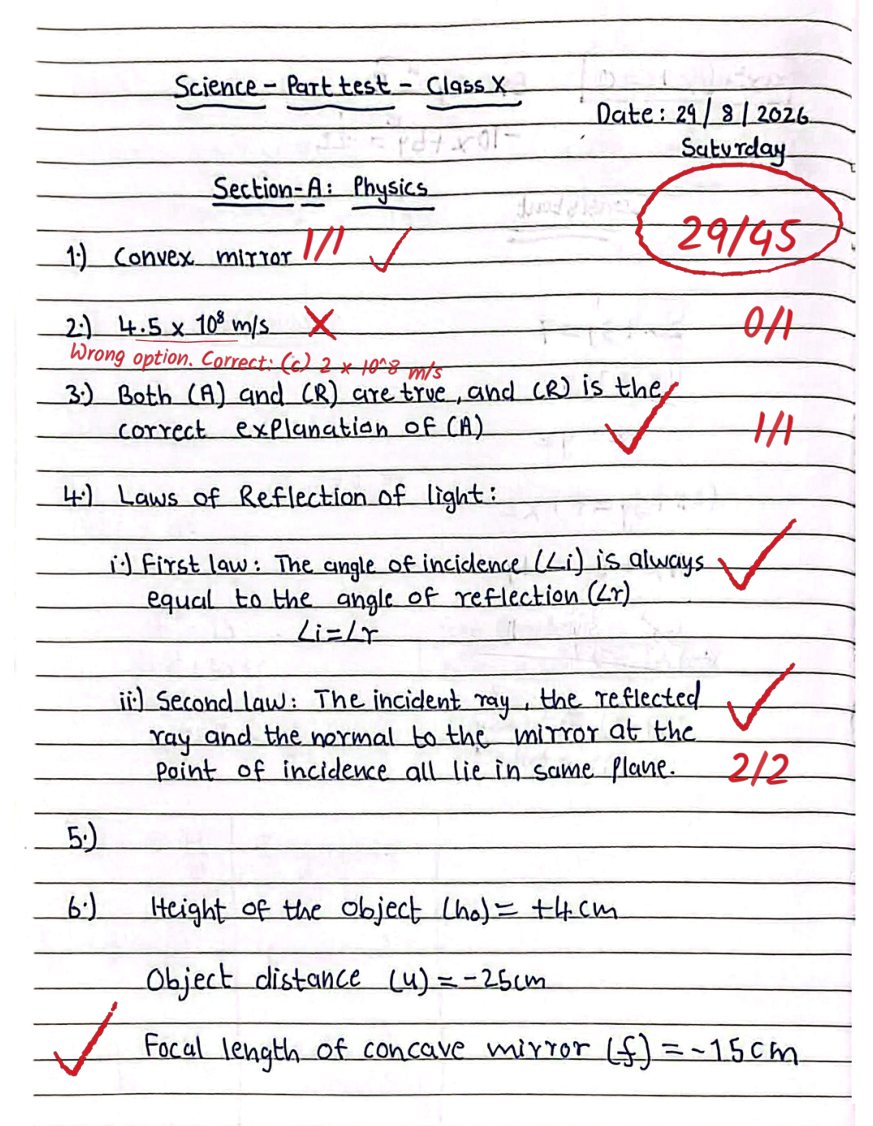 Science - Part test - Class X
Date: 29/8/2026
Saturday
Section-A: Physics
29/45
1.) Convex mirror 1/1 ✓
2.) 4.5 x 10⁸ m/s ✗ 0/1
Wrong option. Correct: (c) 2 x 10^8 m/s
3.) Both (A) and (R) are true, and (R) is the
correct explanation of (A) ✓ 1/1
4.) Laws of Reflection of light:
i.) First law: The angle of incidence (∠i) is always ✓
equal to the angle of reflection (∠r)
∠i=∠r
ii.) Second law: The incident ray, the reflected ✓
ray and the normal to the mirror at the
Point of incidence all lie in same plane. 2/2
5.)
6.) Height of the object (ho) = +4cm
Object distance (u) = -25cm
✓ Focal length of concave mirror (f) = -15cm